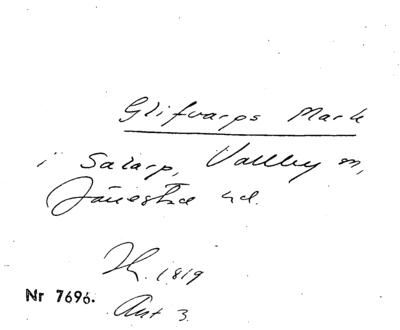 Glifvarps Mark
i Salarp, Vallby m,
Järrestad hd.
Th. 1819
Nr 7696.
Ant 3.